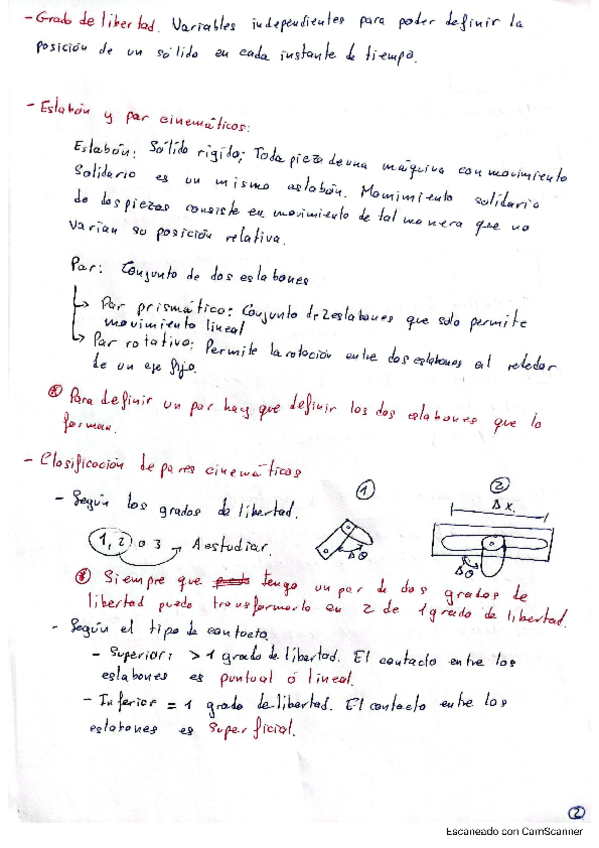 - Grado de libertad. Variables independientes para poder definir la
posición de un sólido en cada instante de tiempo.
- Eslabón y par cinemáticos:
Eslabón: Sólido rígido; Toda pieza de una máquina con movimiento
Solidario es un mismo eslabón. Momimiento solidario
de dos piezas consiste en movimiento de tal manera que no
varian su posición relativa.
Par: Conjunto de dos eslabones
↳ Par prismático: Conjunto de 2 eslabones que solo permite
movimiento lineal
↳ Par rotativo: Permite la rotación entre dos eslabones al rededor
de un eje fijo.
⊛ Para definir un par hay que definir los dos eslabones que lo
forman.
- Clasificación de pares cinemáticos
- Según los grados de libertad.
1
2
Δx.
1, 2 o 3 → A estudiar.
Δθ
Δθ
⊛ Siempre que tengo un par de dos grados de
libertad puedo transformarlo en 2 de 1 grado de libertad.
- Según el tipo de contacto.
- Superior: > 1 grado de libertad. El contacto entre los
eslabones es puntual ó lineal.
- Inferior = 1 grado de libertad. El contacto entre los
eslabones es superficial.
2
Escaneado con CamScanner